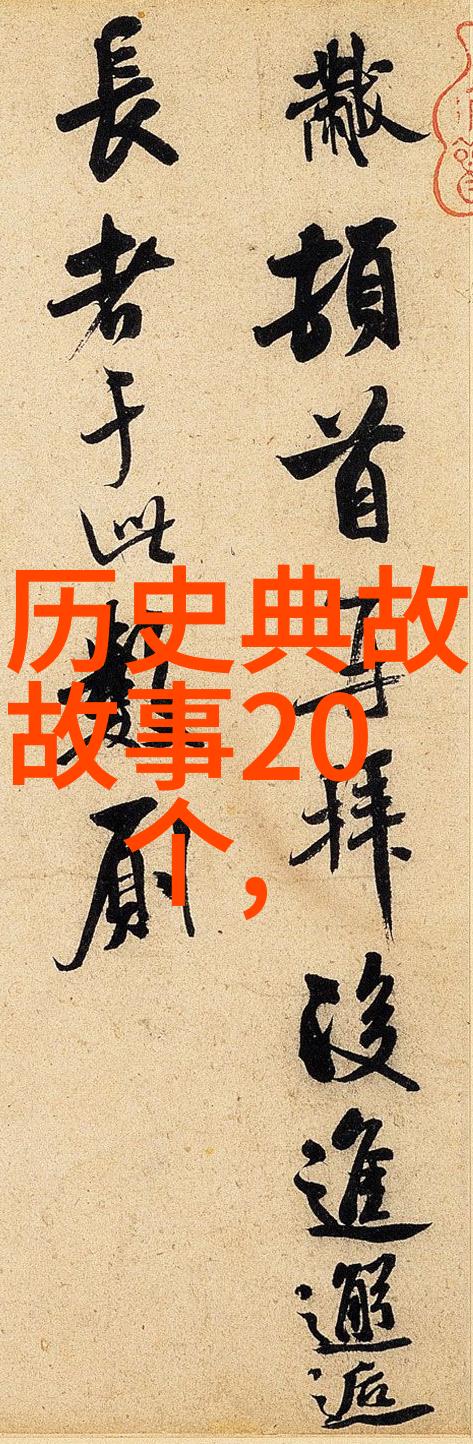 黻頓首再拜後進邂逅
長者于此數厠
历史典故
故事20
个,